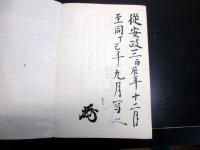 從安政三丙辰年十二月
至同丁巳年九月写之